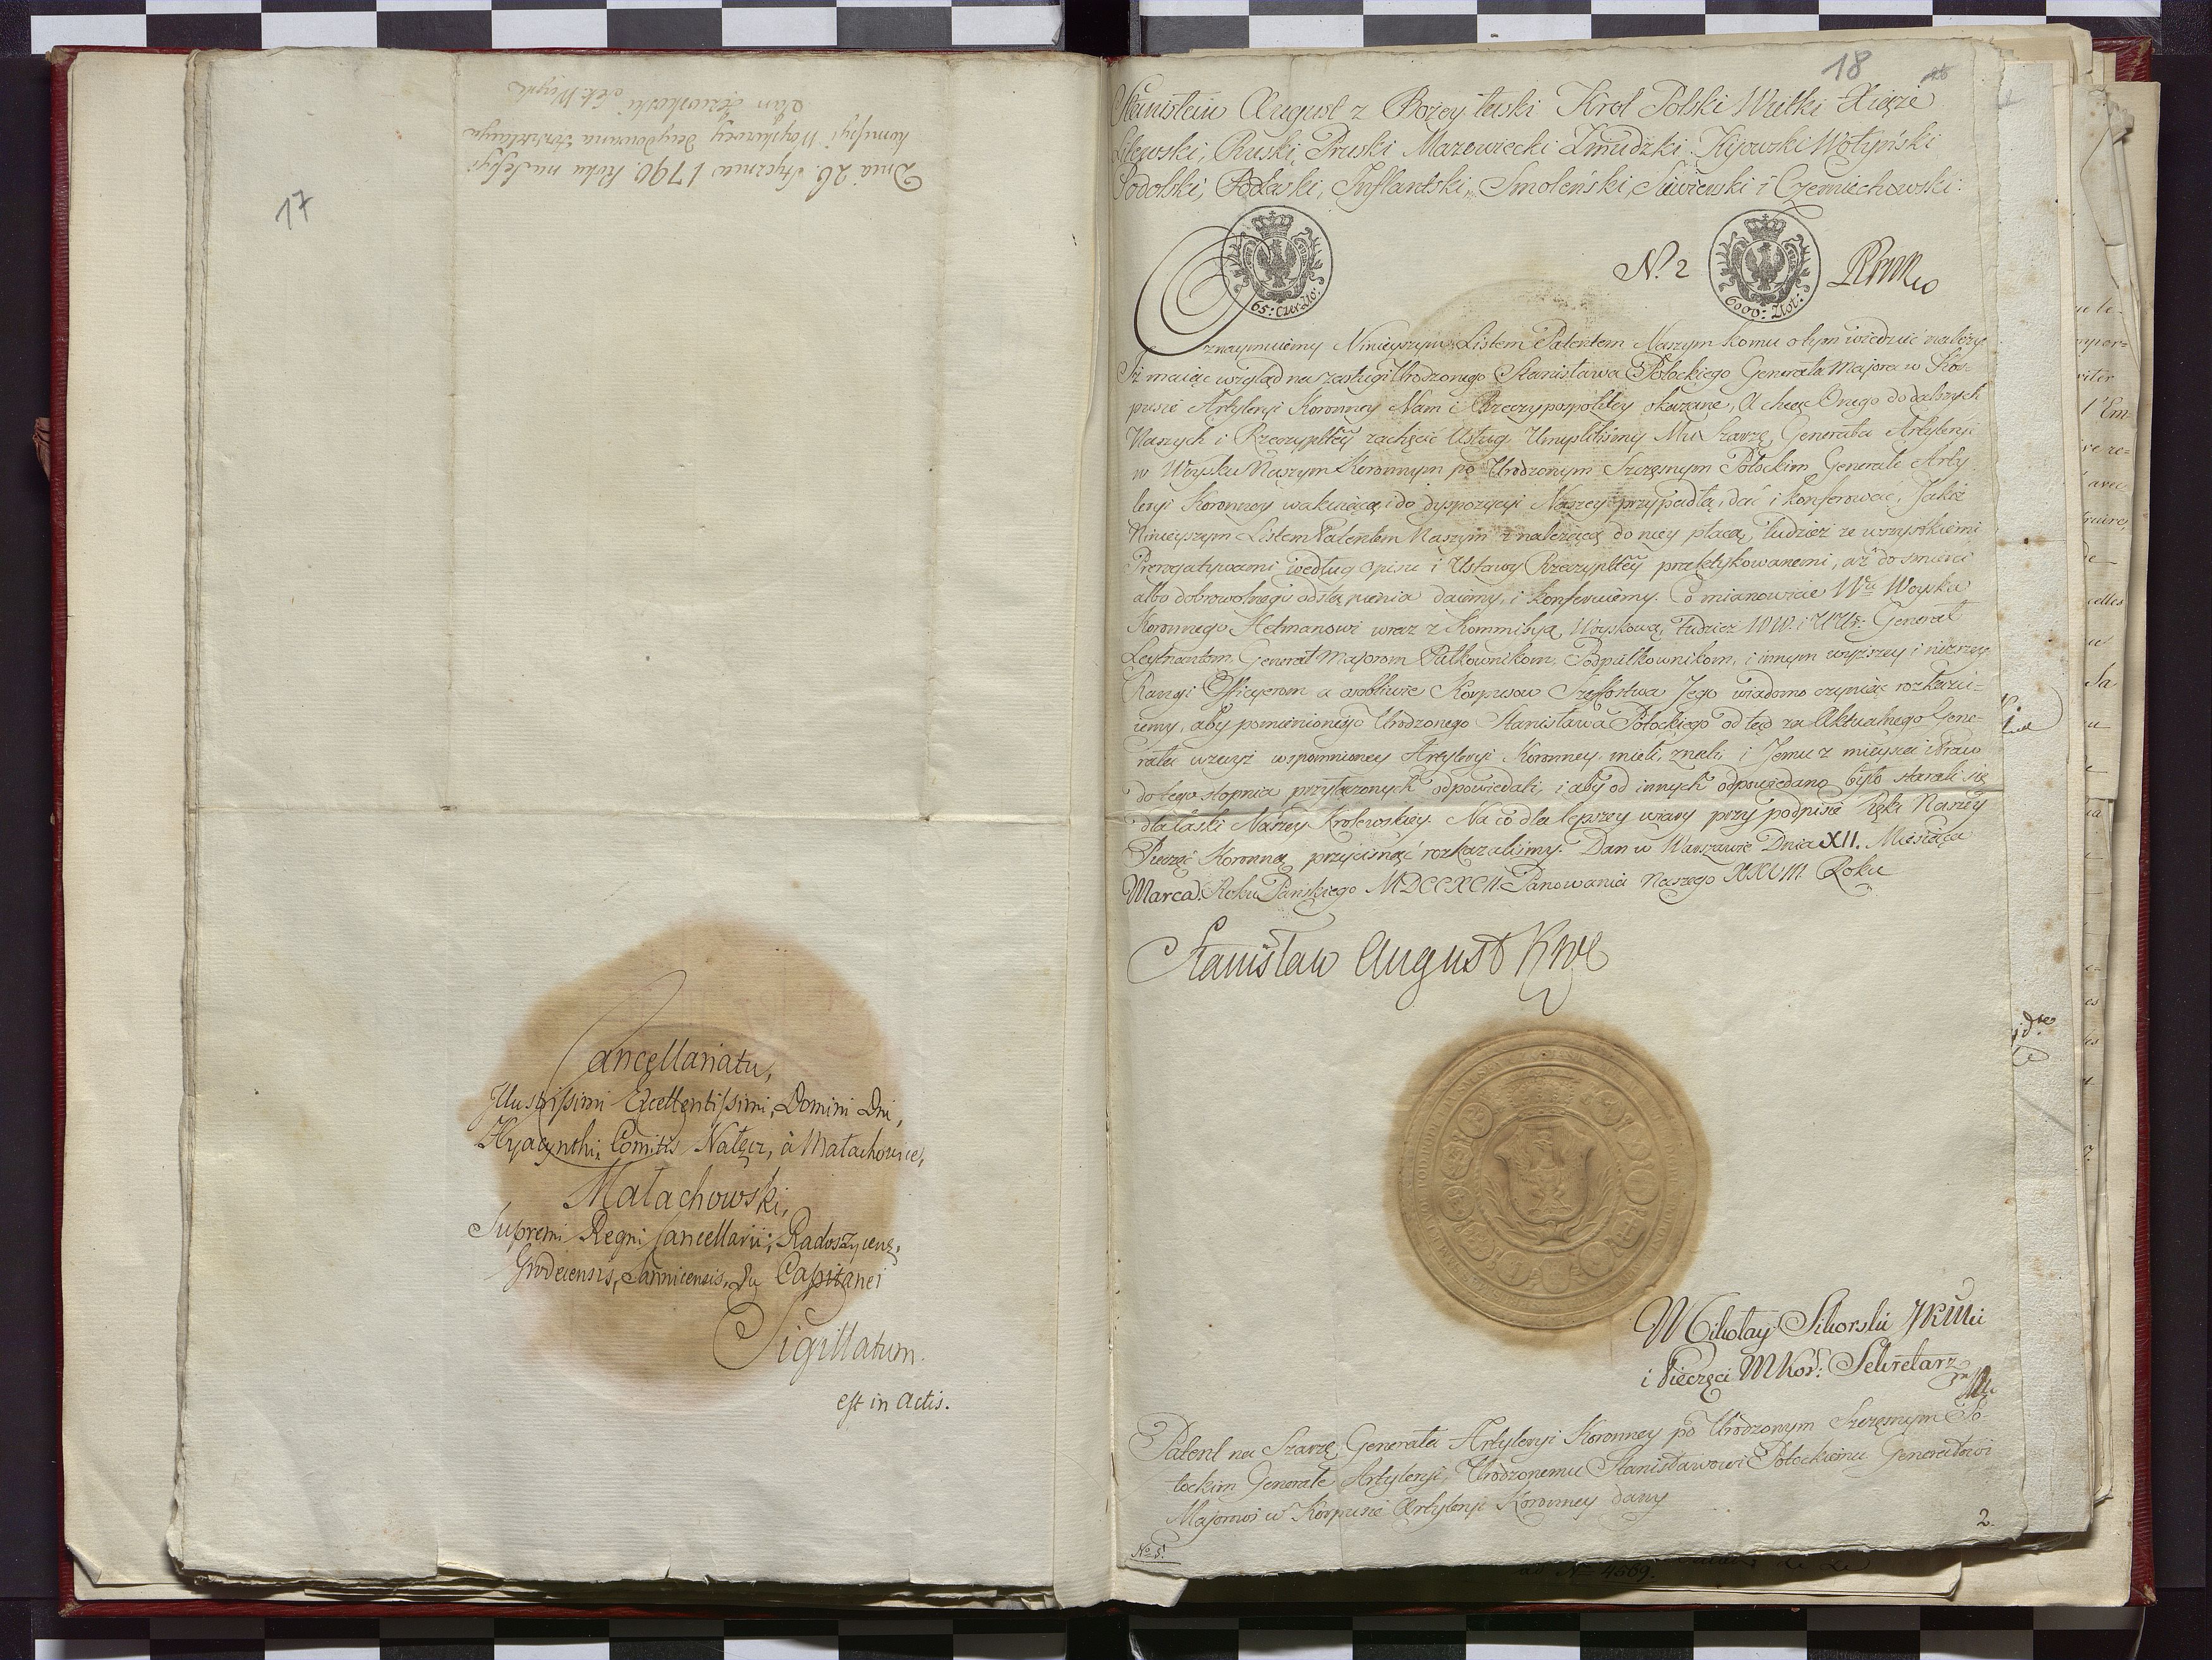 17
Dnia 26. Stycznia 1790. Roku na Sessyi
Kommissyi Woyskowey
Jan
Cancellariatu,
Jllustrissimi Excellentissimi, Domini Dni,
Hyacynthi, Comitis Nałęcz, à Małachowice,
Małachowski,
Supremi Regni Cancellarii, Radoszycens,
Grodecensis, Sannicensis, Capitanei
Sigillatum.
est in Actis.
18
Stanisław August z Bożey łaski Krol Polski Wielki Xiąże
Litewski, Ruski, Pruski Mazowiecki Zmudzki Kijowski Wołyński
Podolski, Podlaski, Inflantski, Smoleński, Siewierski i Czerniechowski.
65: Czer: Zło:
N. 2
6000: Złot:
Oznaymuiemy Ninieyszym Listem Patentem Naszym komu o tym wiedzieć należy
Iż maiąc wzgląd na zasługi Urodzonego Stanisława Potockiego Generała Majora w Kor-
pusie Artyleryi Koronney Nam i Rzeczypospolitey okazane, A chcąc Onego do dalszych
Naszych i Rzeczypltey zachęcić Usług Umyśliliśmy Mu Szarżę Generała Artyleryi
w Woysku Naszym Koronnym po Urodzonym Szczęsnym Potockim Generale Arty
leryi Koronney wakuiącą i do dyspozycyi Naszey przypadłą, dać i konferować, Jakoż
Ninieyszym Listem Patentem Naszym z należącą do niey płacą, tudzież ze wszystkiemi
Prerogatywami według opisu i Ustawy Rzeczypltey praktykowanemi, aż do smierci
albo dobrowolnego odstąpienia daiemy, i konferuiemy. Co mianowicie Wu Woyska
Koronnego Hetmanowi wraz z Kommissyą Woyskową, tudzież WW. i UUr: Generał
Leytnantom, Generał Majorom Pułkownikom, Podpułkownikom, i innym wyższey i niższey
Rangi Officyerom a osobliwie Korpusow Szefostwa Jego wiadomo czyniąc rozkazu-
iemy, aby pomienionego Urodzonego Stanisława Potockiego od tąd za Aktualnego Gene-
rała wzwyż wspomnioney Artyleryi Koronney, mieli, znali, i Jemu z mieysca i Praw
do tego stopnia przyłączonych odpowiedali, i aby od innych odpowiedano było starali się
dla łaski Naszey Krolewskiey. Na co dla lepszey wiary przy podpisie Ręki Naszey
Pieczęć Koronną przycisnąć rozkazaliśmy. Dan w Warszawie Dnia XII. Miesiąca
Marca. Roku Pańskiego MDCCXCII Panowania Naszego XXVIII. Roku
Stanisław August Krol
Mikołay Sikorski JKMci
i Pieczęci WKor: Sekretarz
Patent na Szarżę Generała Artyleryi Koronney po Urodzonym Szczęsnym Po-
tockim Generale Artyleryi, Urodzonemu Stanisławowi Potockiemu Generałowi
Majorowi w Korpusie Artyleryi Koronney dany
2.
No 5.
4669.